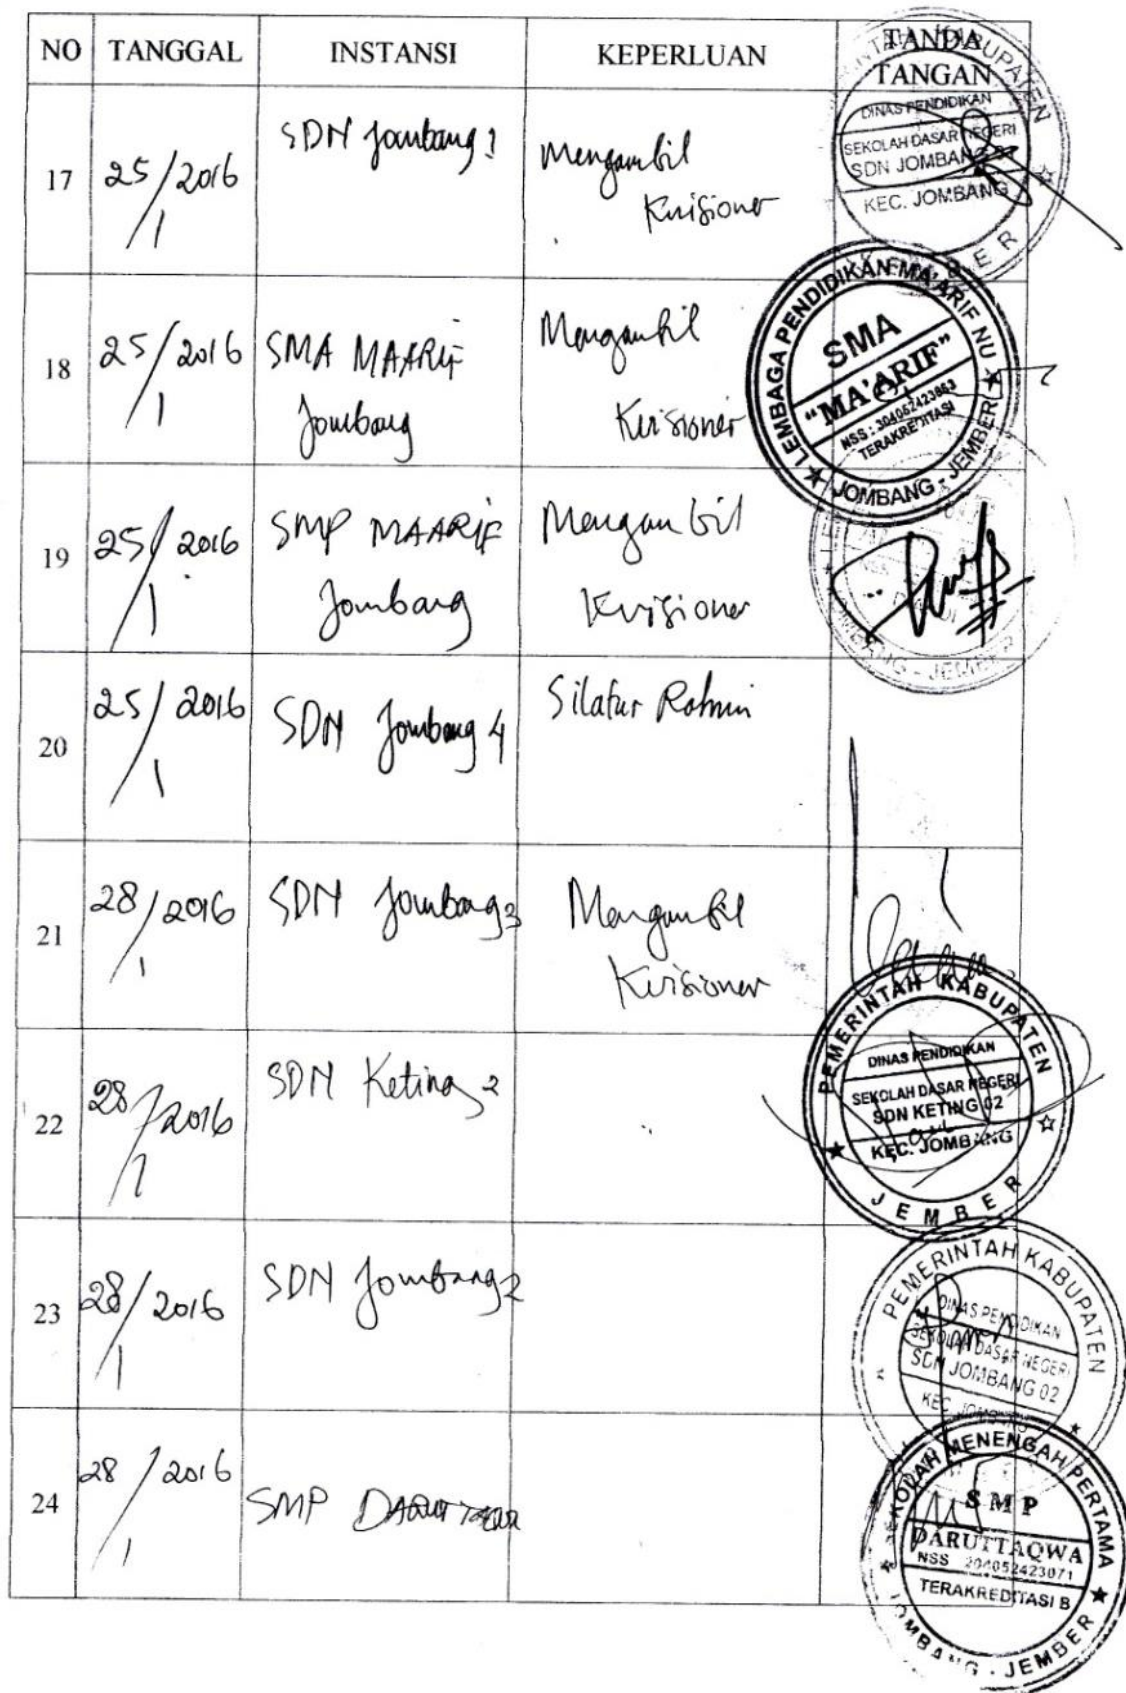 NO TANGGAL INSTANSI KEPERLUAN TANDA TANGAN
17 25/1 2016 SDN Jombang 1 Mengambil
Kuisioner
DINAS PENDIDIKAN
SEKOLAH DASAR NEGERI
SDN JOMBANG
KEC. JOMBANG
18 25/1 2016 SMA MAARIF Mengambil
Jombang Kuisioner
LEMBAGA PENDIDIKAN MA'ARIF NU
SMA
"MA'ARIF"
NSS : 304052423853
TERAKREDITASI
JOMBANG - JEMBER
19 25/1 2016 SMP MAARIF Mengambil
Jombang Kuisioner
JEMBER
20 25/1 2016 SDN Jombang 4 Silatur Rohmin
21 28/1 2016 SDN Jombang 3 Mengambil
Kuisioner
22 28/1 2016 SDN Keting 2
PEMERINTAH KABUPATEN
DINAS PENDIDIKAN
SEKOLAH DASAR NEGERI
SDN KETING 02
KEC. JOMBANG
JEMBER
23 28/1 2016 SDN Jombang 2
PEMERINTAH KABUPATEN
DINAS PENDIDIKAN
SEKOLAH DASAR NEGERI
SDN JOMBANG 02
KEC JOMBANG
24 28/1 2016 SMP
SEKOLAH MENENGAH PERTAMA
SMP
DARUTTAQWA
NSS 204052423071
TERAKREDITASI B
JOMBANG - JEMBER